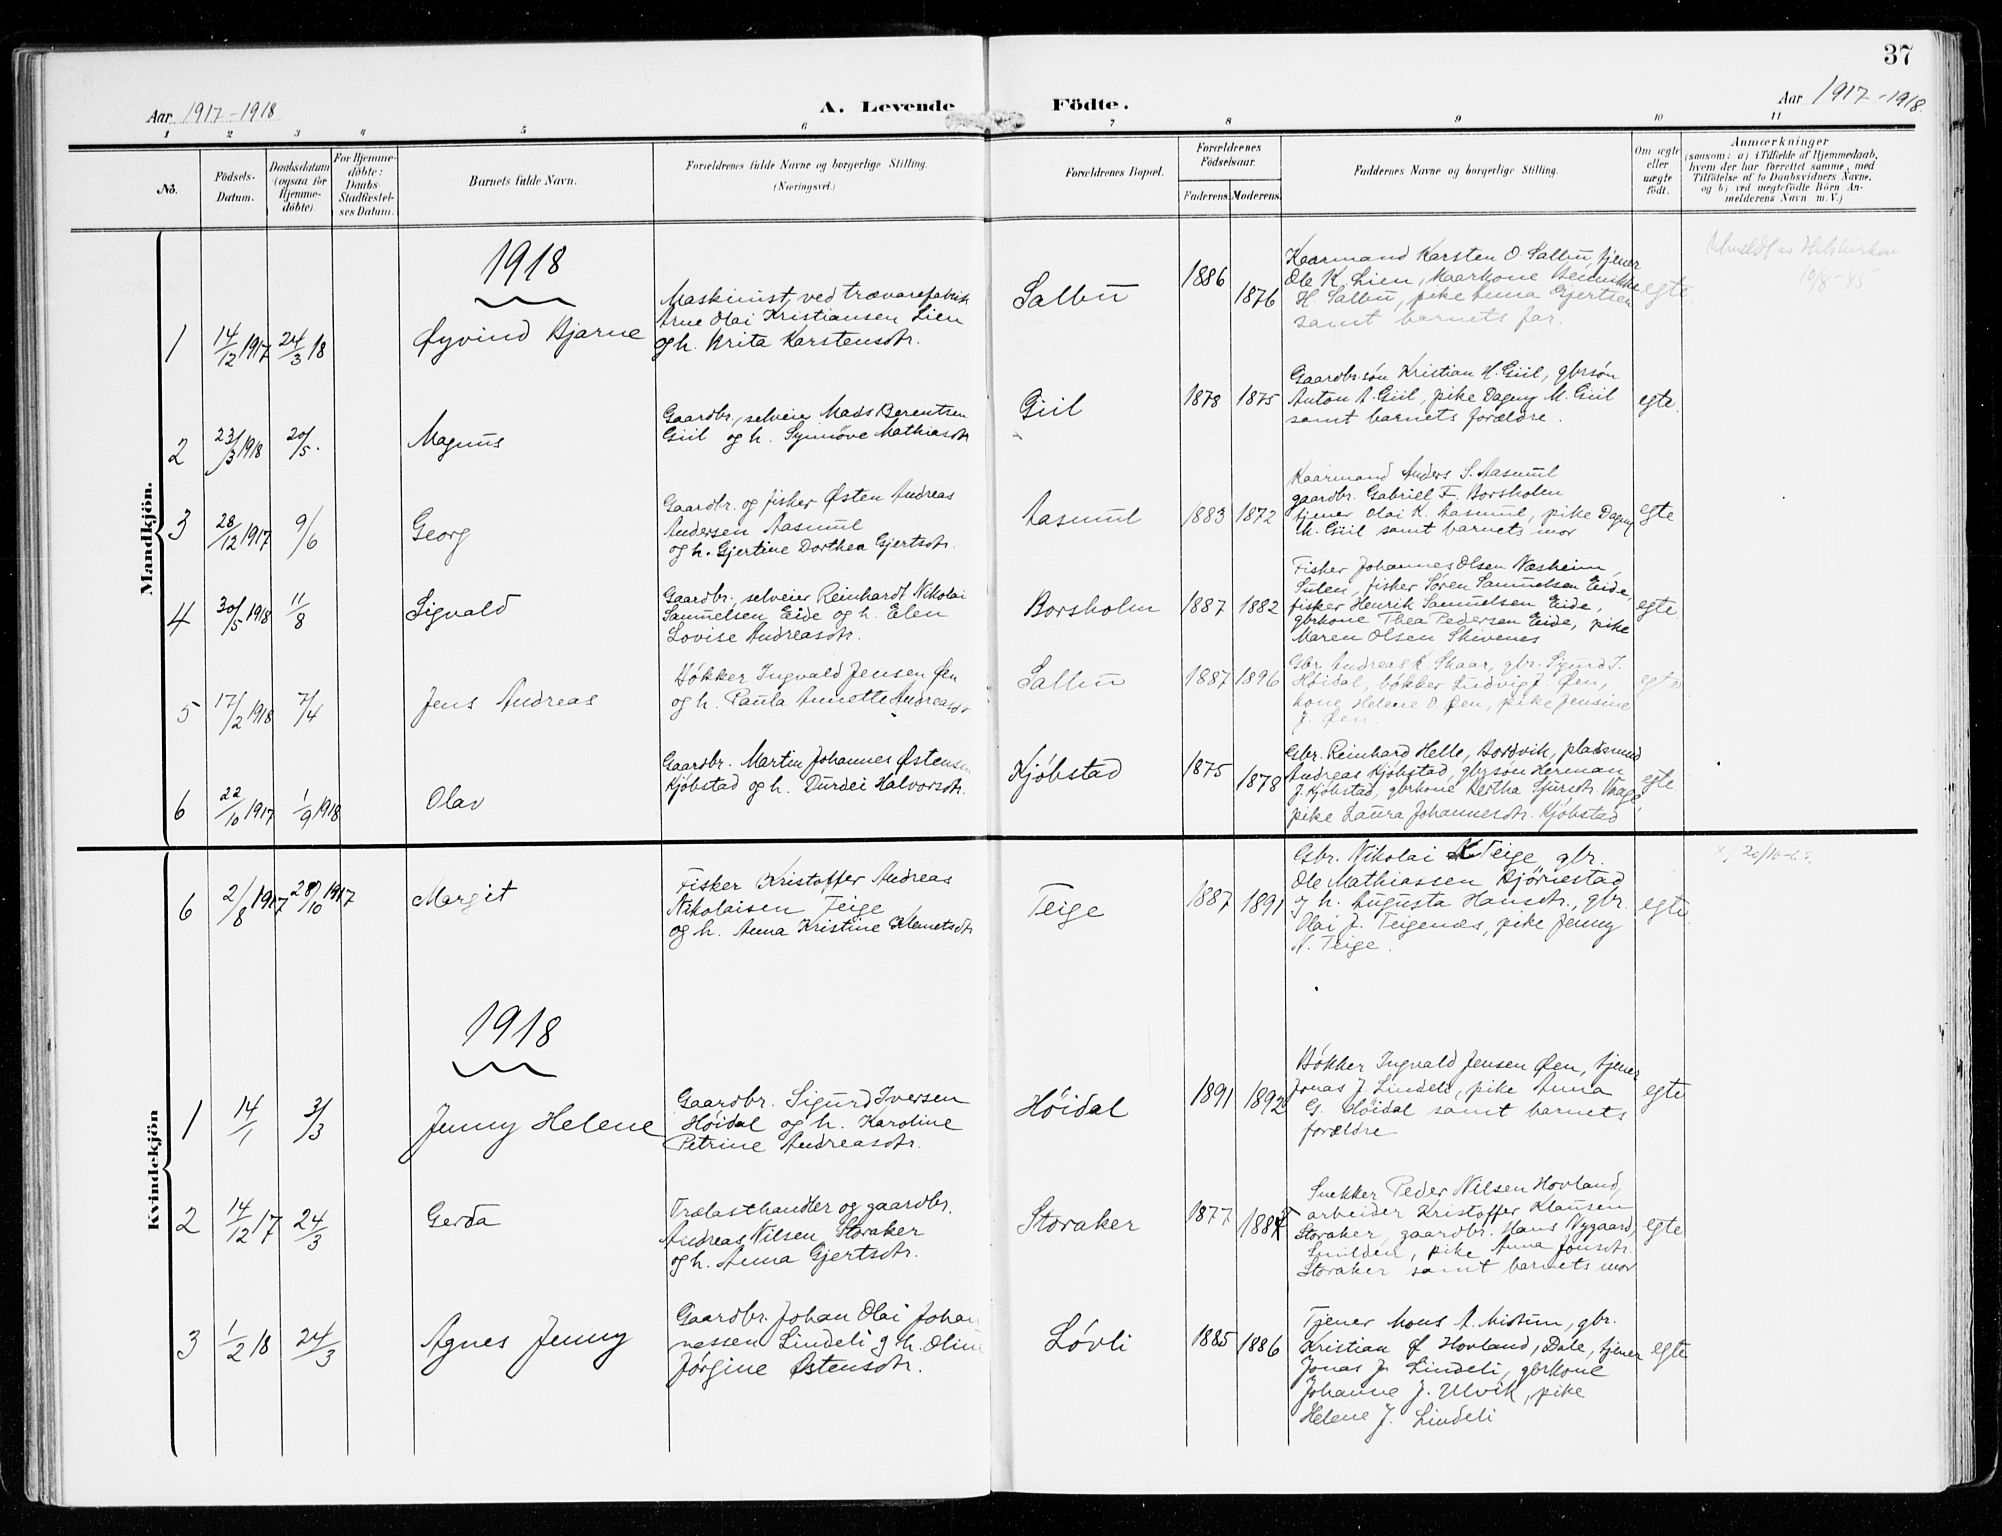 37
Aar 1917-1918
A. Levende Födte.
Aar 1917-1918
1 2 3 4 5 6 7 8 9 10 11
No.
Födsels-
Datum.
Daabsdatum
(ogsaa for
Hjemme-
döbte).
For Hjemme-
döbte:
Daabs-
Stadfæstel-
ses Datum.
Barnets fulde Navn.
Forældrenes fulde Navne og borgerlige Stilling.
(Næringsvei.)
Forældrenes Bopæl.
Forældrenes
Födselsaar.
Faderens Moderens
Faddernes Navne og borgerlige Stilling.
Om ægte
eller
uægte
födt.
Anmærkninger
(saasom: a) i Tilfælde af Hjemmedaab,
hvem der har forrettet samme, med
Tilföielse af to Daabsvidners Navne,
og b) ved uægtefödte Börn An-
melderens Navn m. V.)
Mandkjön.
1918
1 14/12 1917 24/3 18
Øyvind Bjarne
Maskinist ved trævarefabrik
Arne Olai Kristiansen Lien
og h. Brita Karstensdtr.
Salbu
1886 1876
Kaarmand Karsten O. Salbu, tjener
Ole K. Lien, kaarkone
H. Salbu, pike Anna Gjertsen
samt barnets far.
egte
10/8-45
2 23/3 1918 20/5.
Magnus
Gaardbr., selveier Mads Berentsen
Giil og h. Synnöve Mathiasdtr
Giil
1878 1875
Gaardbr.søn Kristian H. Giil, gbrsøn
Anton A. Giil, pike Dagny M. Giil
samt barnets forældre.
egte.
3 28/12 1917 9/6
Georg
Gaardbr. og fisker Østen Andreas
Andersen Aasmul
og h. Gjertine Dorthea Gjertsdtr.
Aasmul
1883 1872
Kaarmand Anders S. Aasmul
gaardbr. Gabriel F. Borsholm
tjener Olai K. Aasmul, pike Dagny
M. Giil samt barnets mor
egte
4 30/5 1918 11/8
Sigvald
Gaardbr., selveier Reinhardt Nikolai
Samuelsen Eide og h. Elen
Lovise Andreasdtr.
Borsholm
1887 1882
Fisker Johannes Olsen Næsheim,
Sulen, fisker Søren Samuelsen Eide,
fisker Henrik Samuelsen Eide,
gbrkone Thea Pedersen Eide, pike
Maren Olsen Skivenes
egte.
5 17/2 1918 7/4
Jens Andreas
Bøkker Ingvald Jensen Øen
og h. Paula Annette Andreasdtr
Salbu
1887 1896
Gbr. Andreas K. Skaar, gbr. Sigurd I.
Høidal, bøkker Ludvig J. Øen,
kone Helene O. Øen, pike Jensine
J. Øen.
egte
6 22/10 1917 1/9 1918
Olav
Gaardbr. Martin Johannes Østensen
Kjøbstad og h. Durdei Halvorsdtr.
Kjøbstad
1875 1878
Gbr. Reinhard Helle, Bordvik, pladsmand
Andreas Kjøbstad, gbrsøn Herman
J. Kjøbstad, gbrkone Bertha Sjursdtr. Vaage,
pike Laura Johannesdtr. Kjøbstad
egte
Kvindekjön
6 2/8 1917 28/10 1917
Margit
Fisker Kristoffer Andreas
Nikolaisen Teige
og h. Anna Kristine Klemetsdtr
Teige
1887 1891
Gbr. Nikolai K Teige, gbr.
Ole Mathiassen Bjørnestad
og h. Augusta Hansdtr., gbr.
Olai J. Teigenæs, pike Jenny
N. Teige.
egte
1918
1 14/1 31/3
Jenny Helene
Gaardbr. Sigurd Iversen
Høidal og h. Karoline
Petrine Andreasdtr.
Høidal
1891 1892
Bøkker Ingvald Jensen Øen, tjener
Jonas J. Lindeli, pike Anna
G. Høidal samt barnets
forældre
egte
2 14/12 17 24/3
Gerda
Trælasthandler og gaardbr.
Andreas Nilsen Storaker
og h. Anna Gjertsdtr.
Storaker
1877
Snekker Peder Nilsen Hovland,
arbeider Kristoffer Klausen
Storaker, gaardbr. Hans Nygaard,
pike Anna Jonsdtr.
Storaker samt barnets mor
egte
3 1/2 18 24/3
Agnes Jenny
Gaardbr. Johan Olai Johan
nessen Lindeli og h. Oline
Jørgine Østensdtr.
Løvli
1885 1886
Tjener Mons A. gbr.
Kristian Ø Hovland, Dale, tjener
Jonas J. Lindeli, gbrkone
Johanne J. Ulvik, pike
Helene J. Lindeli
egte